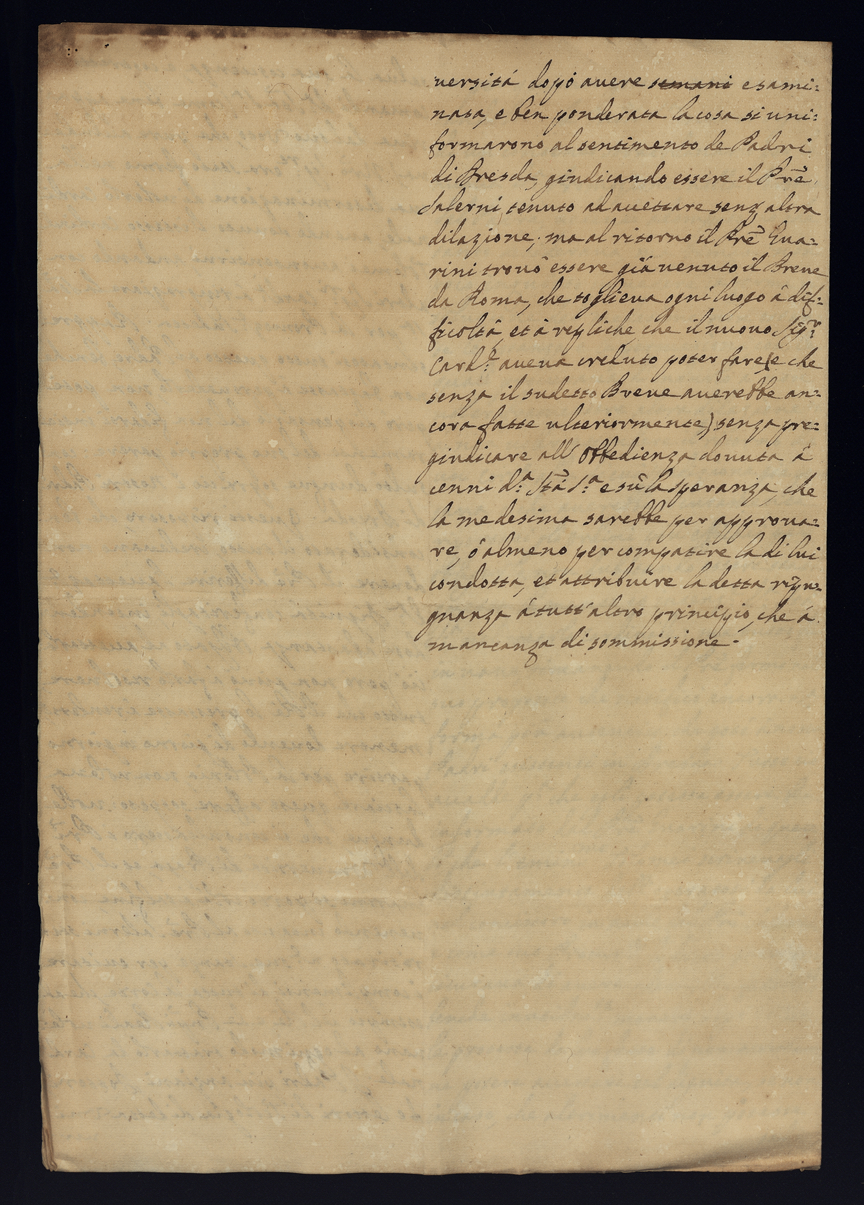 uersitá dopò auere semani esami:
nata, e ben ponderata la cosa si uni:
formarono al sentimento de Padri
di Bresda, giudicando essere il Prẽ
Salerni, tenuto ad accettare senz'altra
dilazione; ma al ritorno il Prẽ Gua=
rini trouò essere giá uenuto il Breue
da Roma, che toglieua ogni luogo á dif:
ficoltá, et á repliche, che il nuouo Sig.r
Card.l aueua creduto poter fare (e che
senza il sudetto Breue auerebbe an=
cora fatte ulteriormente) senza pre=
giudicare all'obbedienza douuta á
cenni d.a Stà S.a e sù la speranza, che
la medesima sarebbe per approua=
re, ó almeno per compatire la di lui
condotta, et attribuire la detta ripu=
gnanza á tutt'altro principio, che á
mancanza di sommissione.